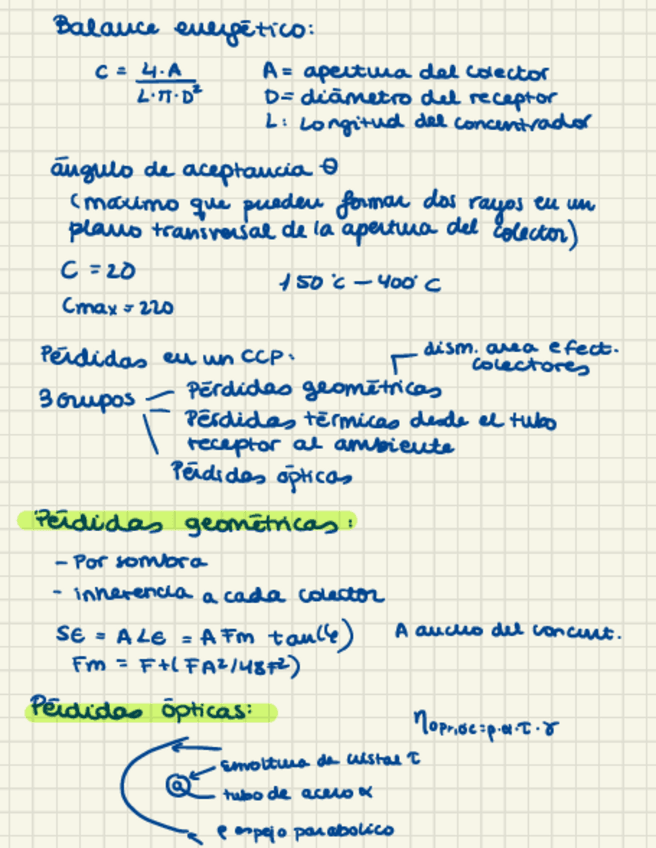 Balance energético:
C = 4·A / L·π·D² A = apertura del colector
D= diámetro del receptor
L: Longitud del concentrador
ángulo de aceptancia θ
(máximo que pueden formar dos rayos en un
plano transversal de la apertura del colector)
C = 20 150°C - 400°C
Cmax = 220
Pérdidas en un CCP: dism. area efect.
colectores
3 Grupos - Pérdidas geométricas
- Pérdidas térmicas desde el tubo
receptor al ambiente
Pérdidas ópticas
Pérdidas geométricas:
- Por sombra
- inherencia a cada colector
SE = A LE = A Fm tan(φ) A ancho del concent.
Fm = F+(FA²/48F²)
Pérdidas ópticas:
η opt,0°C=ρ·α·τ·γ
envoltura de cristal τ
tubo de acero α
ρ espejo parabolico